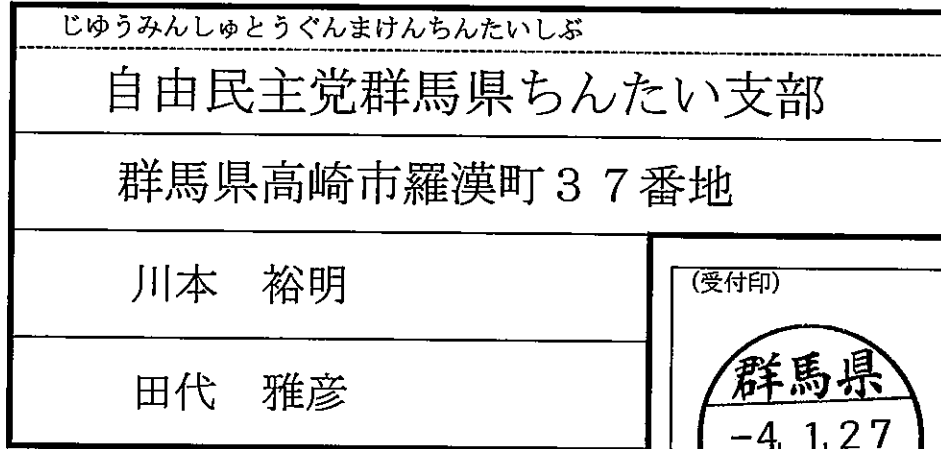 じゆうみんしゅとうぐんまけんちんたいしぶ
自由民主党群馬県ちんたい支部
群馬県高崎市羅漢町37番地
川本 裕明
田代 雅彦
(受付印)
群馬県
-4.1.27